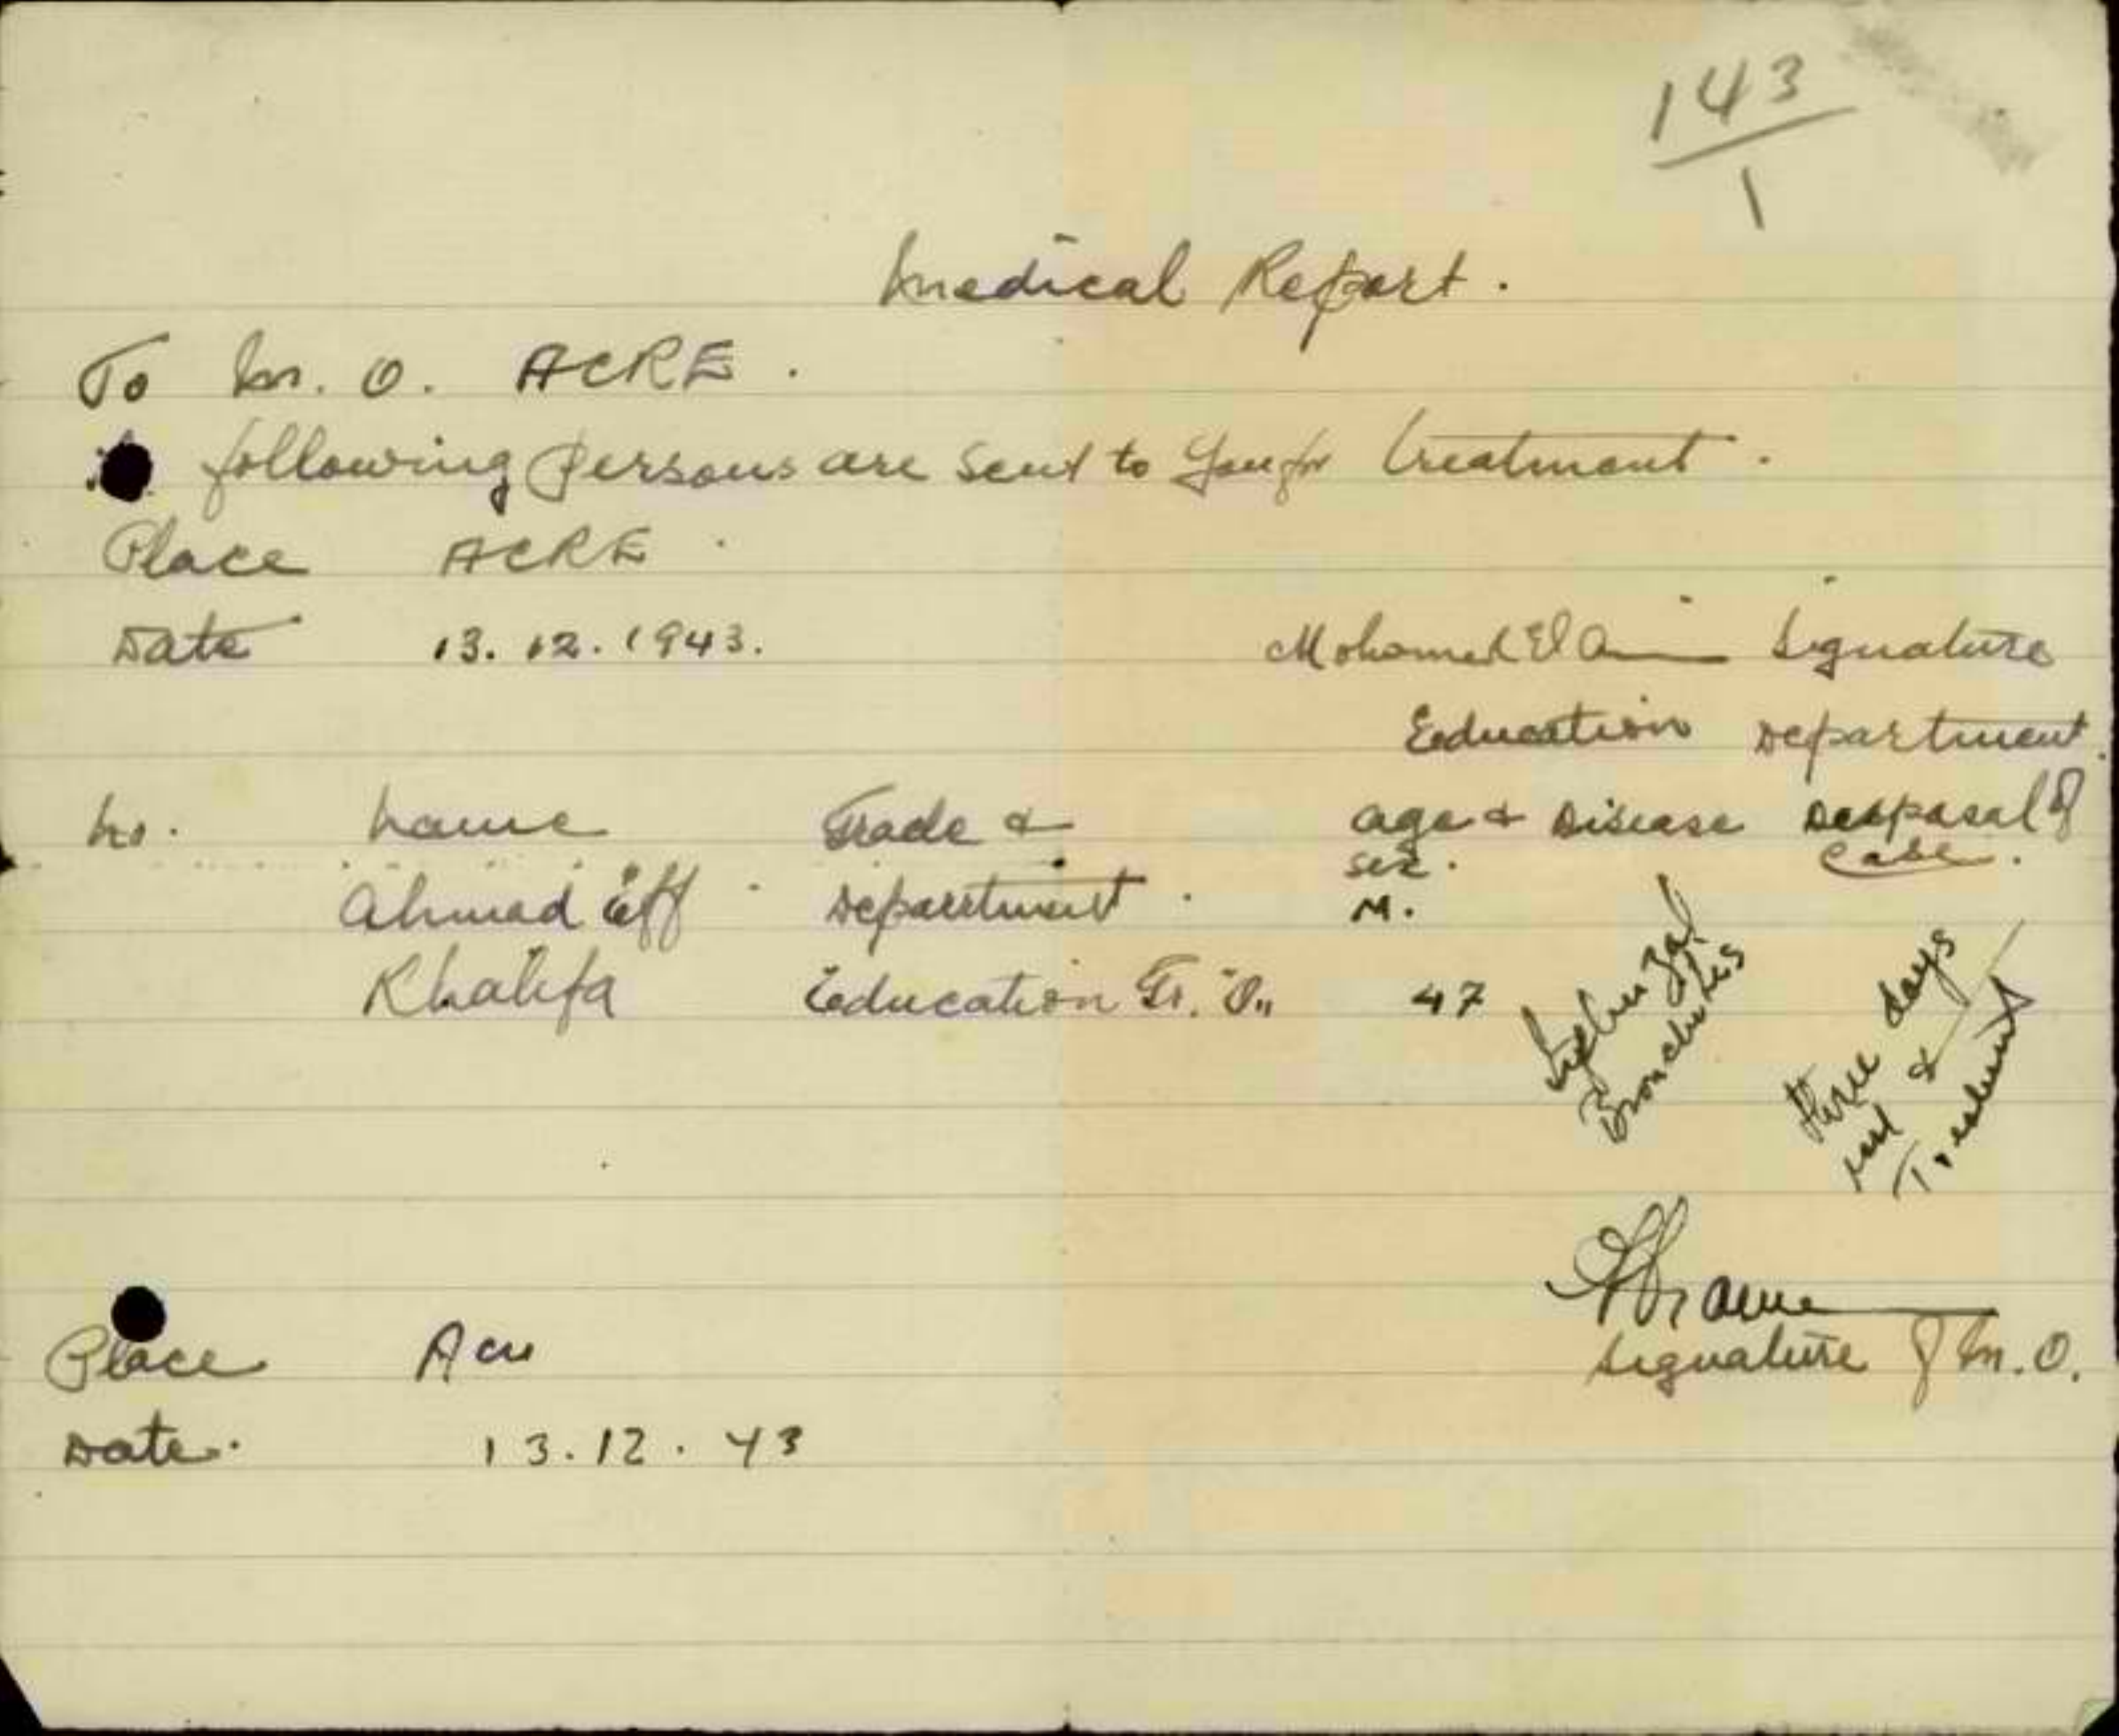 143
1
Medical Report.
To M. O. ACRE.
following persons are sent to you for treatment.
Place ACRE.
Date 13.12.1943.
Mohamed El Signature
Education Department.
No. Name Grade & age & Disease Desposal of
sex. case.
Ahmad Eff Department. M.
Khalifa Education Gr. "O" 47
Influenzal
Bronchites
three days
rest &
Treatment
Signature of M. O.
Place Acre
Date. 13.12.43